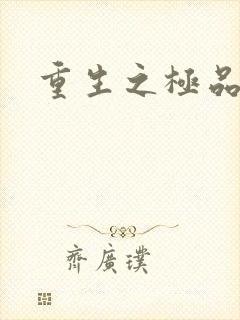 重生之極品
齊廣璞